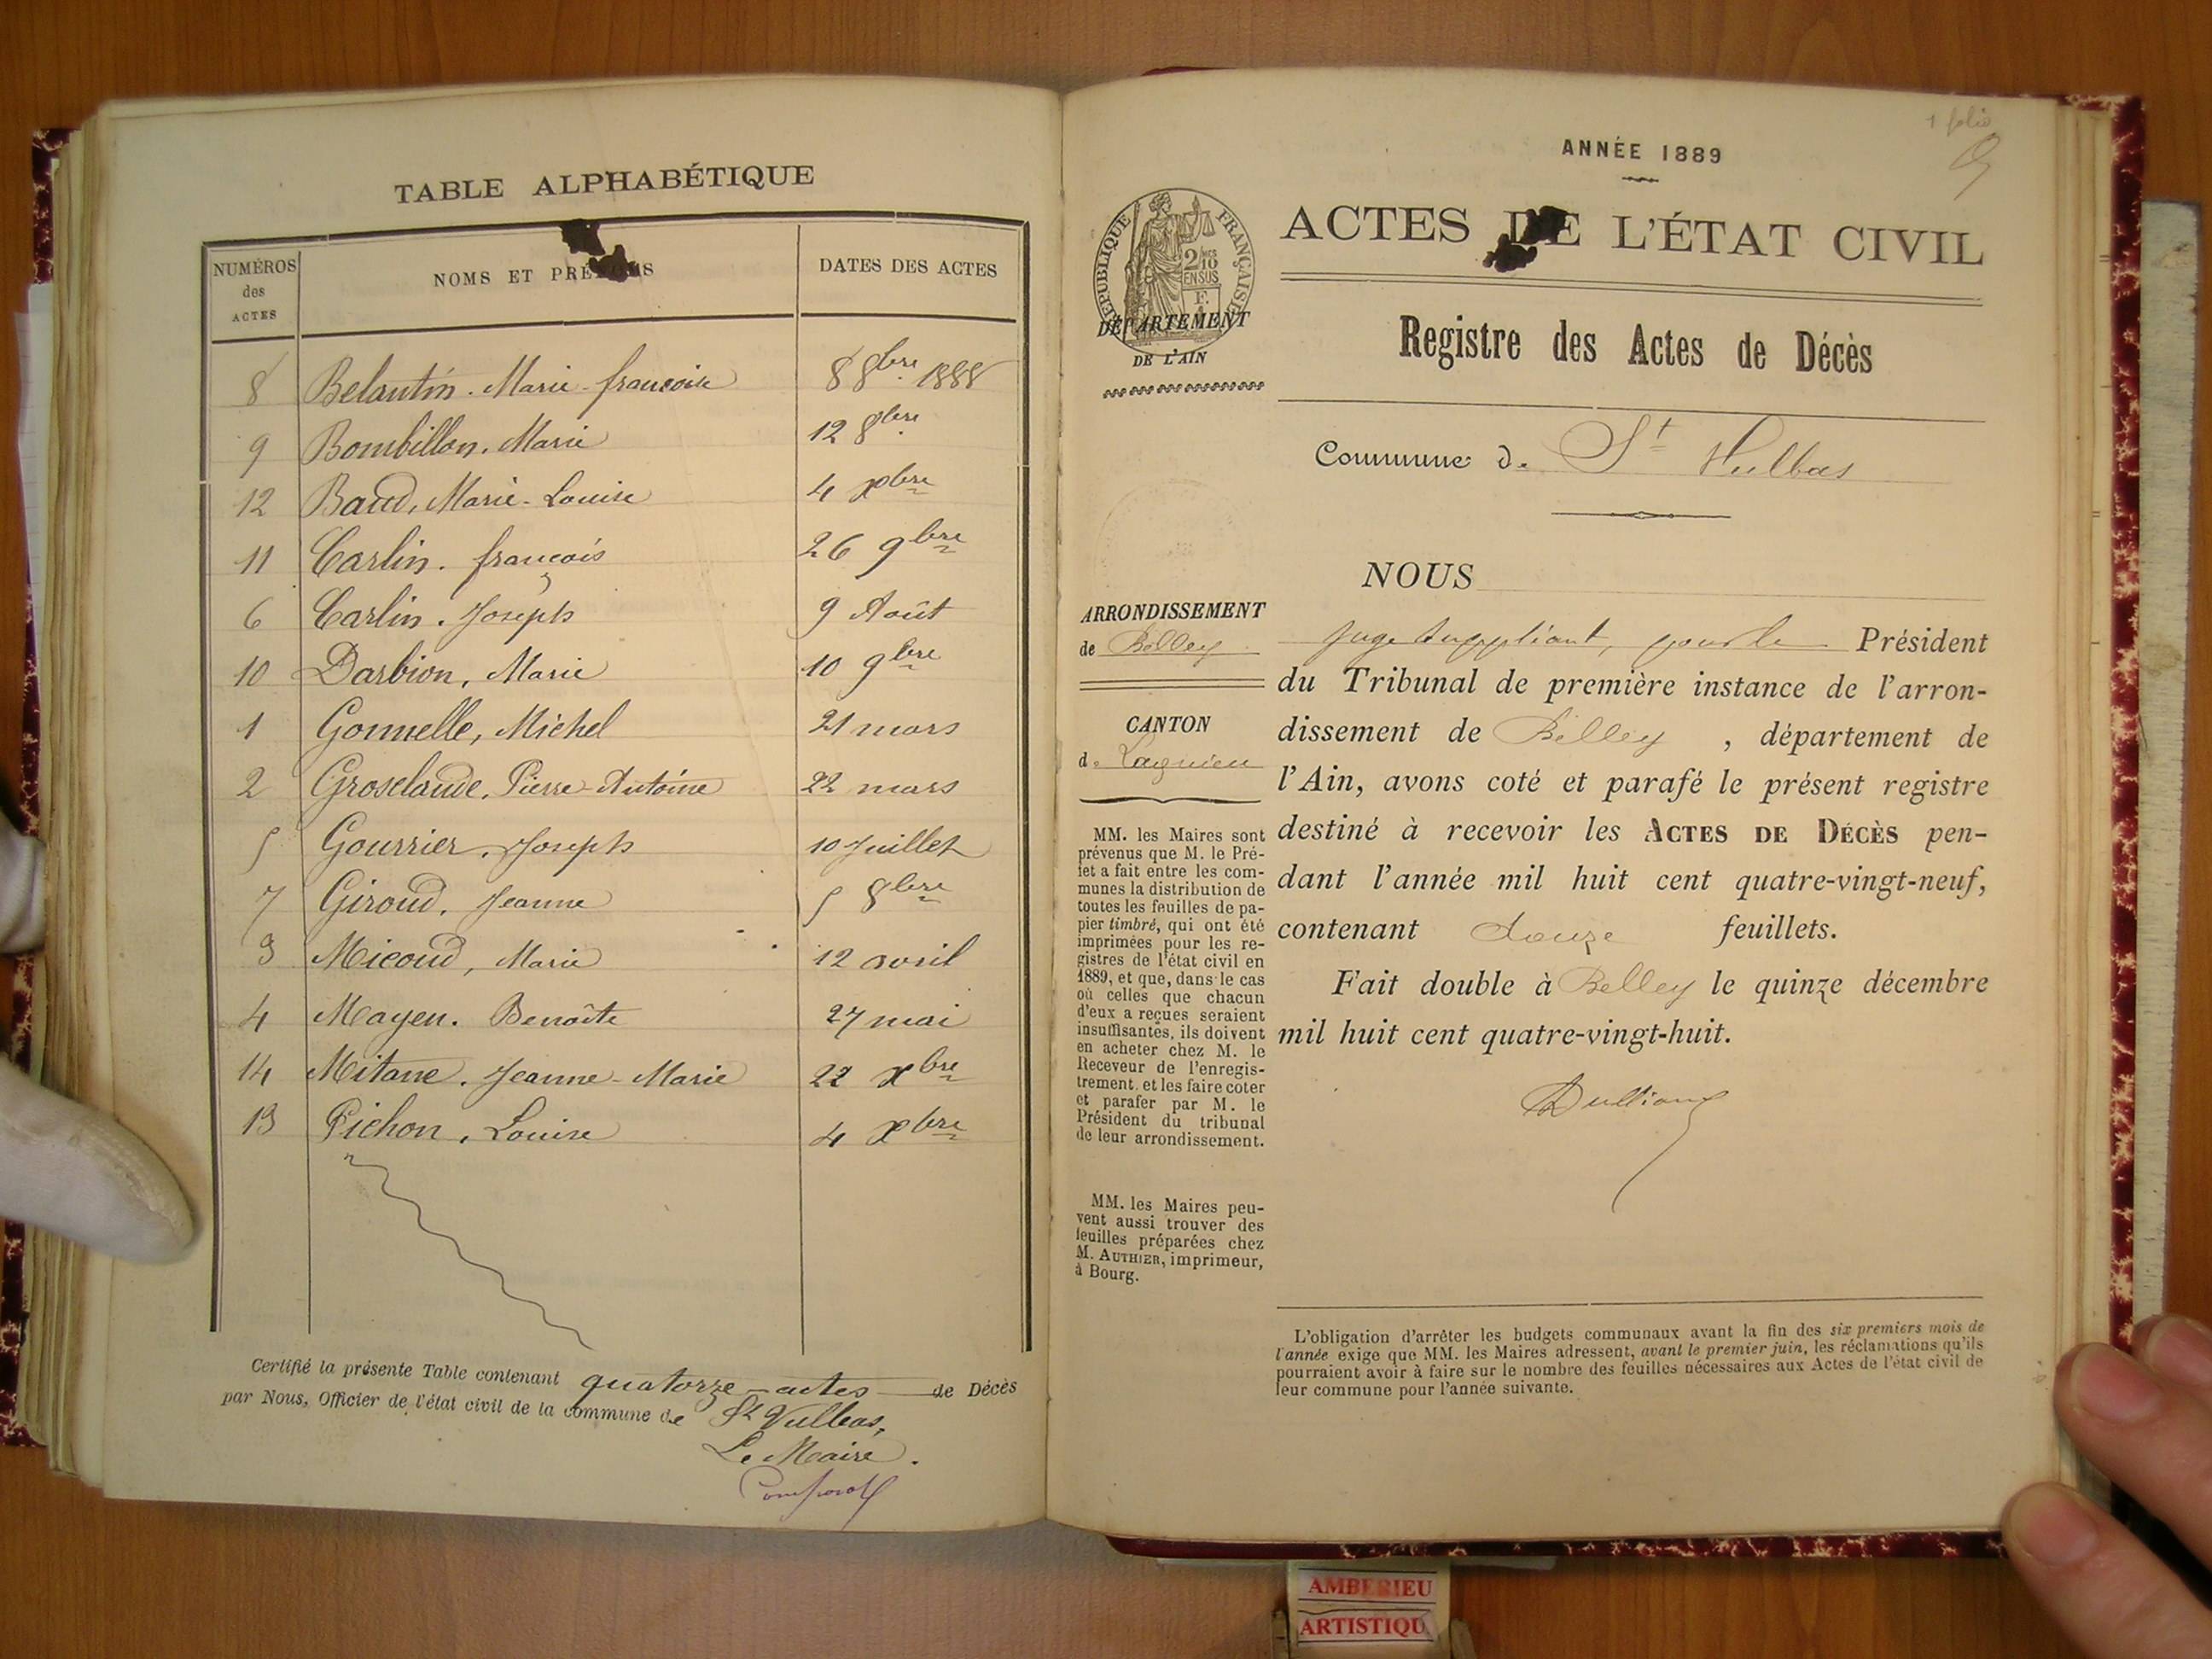 TABLE ALPHABÉTIQUE
NUMÉROS des ACTES
NOMS ET PRÉNOMS
DATES DES ACTES
8 Belantin. Marie-françoise 8 8bre. 1888
9 Bombillon. Marie 12 8bre.
12 Baud, Marie-Louise 4 Xbre
11 Carlin. françois 26 9bre
6 Carlin. Joseph 9 Août
10 Darbion, Marie 10 9bre
1 Gonnelle, Michel 21 mars
2 Groselaude, Pierre-Antoine 22 mars
5 Gourrier, Joseph 10 Juillet
7 Giroud, Jeanne 5 8bre
3 Micoud, Marie 12 avril
4 Mayen. Benoîte 27 mai
14 Mitane. Jeanne-Marie 22 Xbre
13 Pichon, Louise 4 Xbre
Certifié la présente Table contenant quatorze actes de Décès
par Nous, Officier de l'état civil de la commune de St Vulbas,
Le Maire.
1 folio
ANNÉE 1889
RÉPUBLIQUE FRANÇAISE
2/10 EN SUS
DÉPARTEMENT
DE L'AIN
ACTES DE L'ÉTAT CIVIL
Registre des Actes de Décès
Commune de St Vulbas
ARRONDISSEMENT
de Belley
CANTON
de Lagnieu
MM. les Maires sont
prévenus que M. le Pré-
fet a fait entre les com-
munes la distribution de
toutes les feuilles de pa-
pier timbré, qui ont été
imprimées pour les re-
gistres de l'état civil en
1889, et que, dans le cas
où celles que chacun
d'eux a reçues seraient
insuffisantes, ils doivent
en acheter chez M. le
Receveur de l'enregis-
trement. et les faire coter
et parafer par M. le
Président du tribunal
de leur arrondissement.
MM. les Maires peu-
vent aussi trouver des
feuilles préparées chez
M. AUTHIER, imprimeur,
à Bourg.
NOUS
Juge suppléant, pour le Président
du Tribunal de première instance de l'arron-
dissement de Belley, département de
l'Ain, avons coté et parafé le présent registre
destiné à recevoir les ACTES DE DÉCÈS pen-
dant l'année mil huit cent quatre-vingt-neuf,
contenant douze feuillets.
Fait double à Belley le quinze décembre
mil huit cent quatre-vingt-huit.
L'obligation d'arrêter les budgets communaux avant la fin des six premiers mois de
l'année exige que MM. les Maires adressent, avant le premier juin, les réclamations qu'ils
pourraient avoir à faire sur le nombre des feuilles nécessaires aux Actes de l'état civil de
leur commune pour l'année suivante.
AMBERIEU
ARTISTIQU